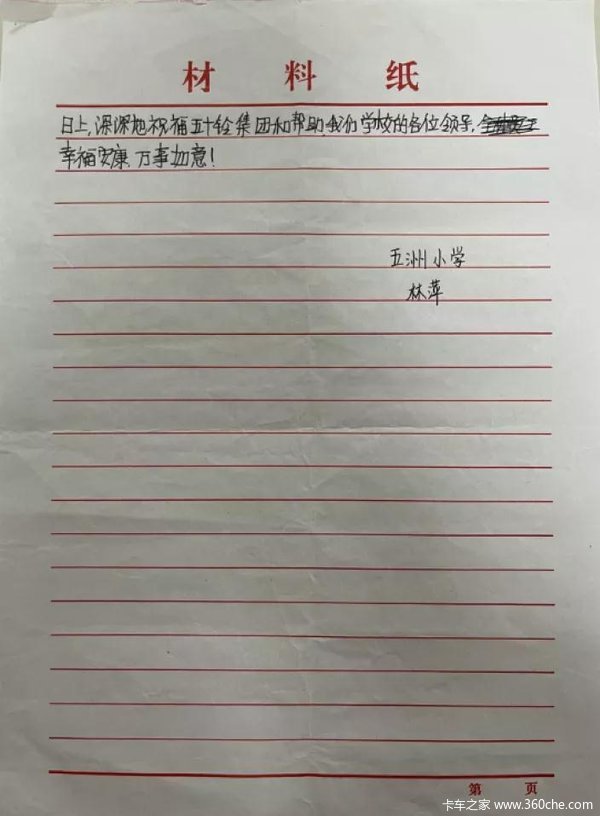 材料纸
日上，深深地祝福五十铃集团和帮助我们学校的各位领导，
幸福安康，万事如意！
五洲小学
林萍
第 页
卡车之家 www.360che.com